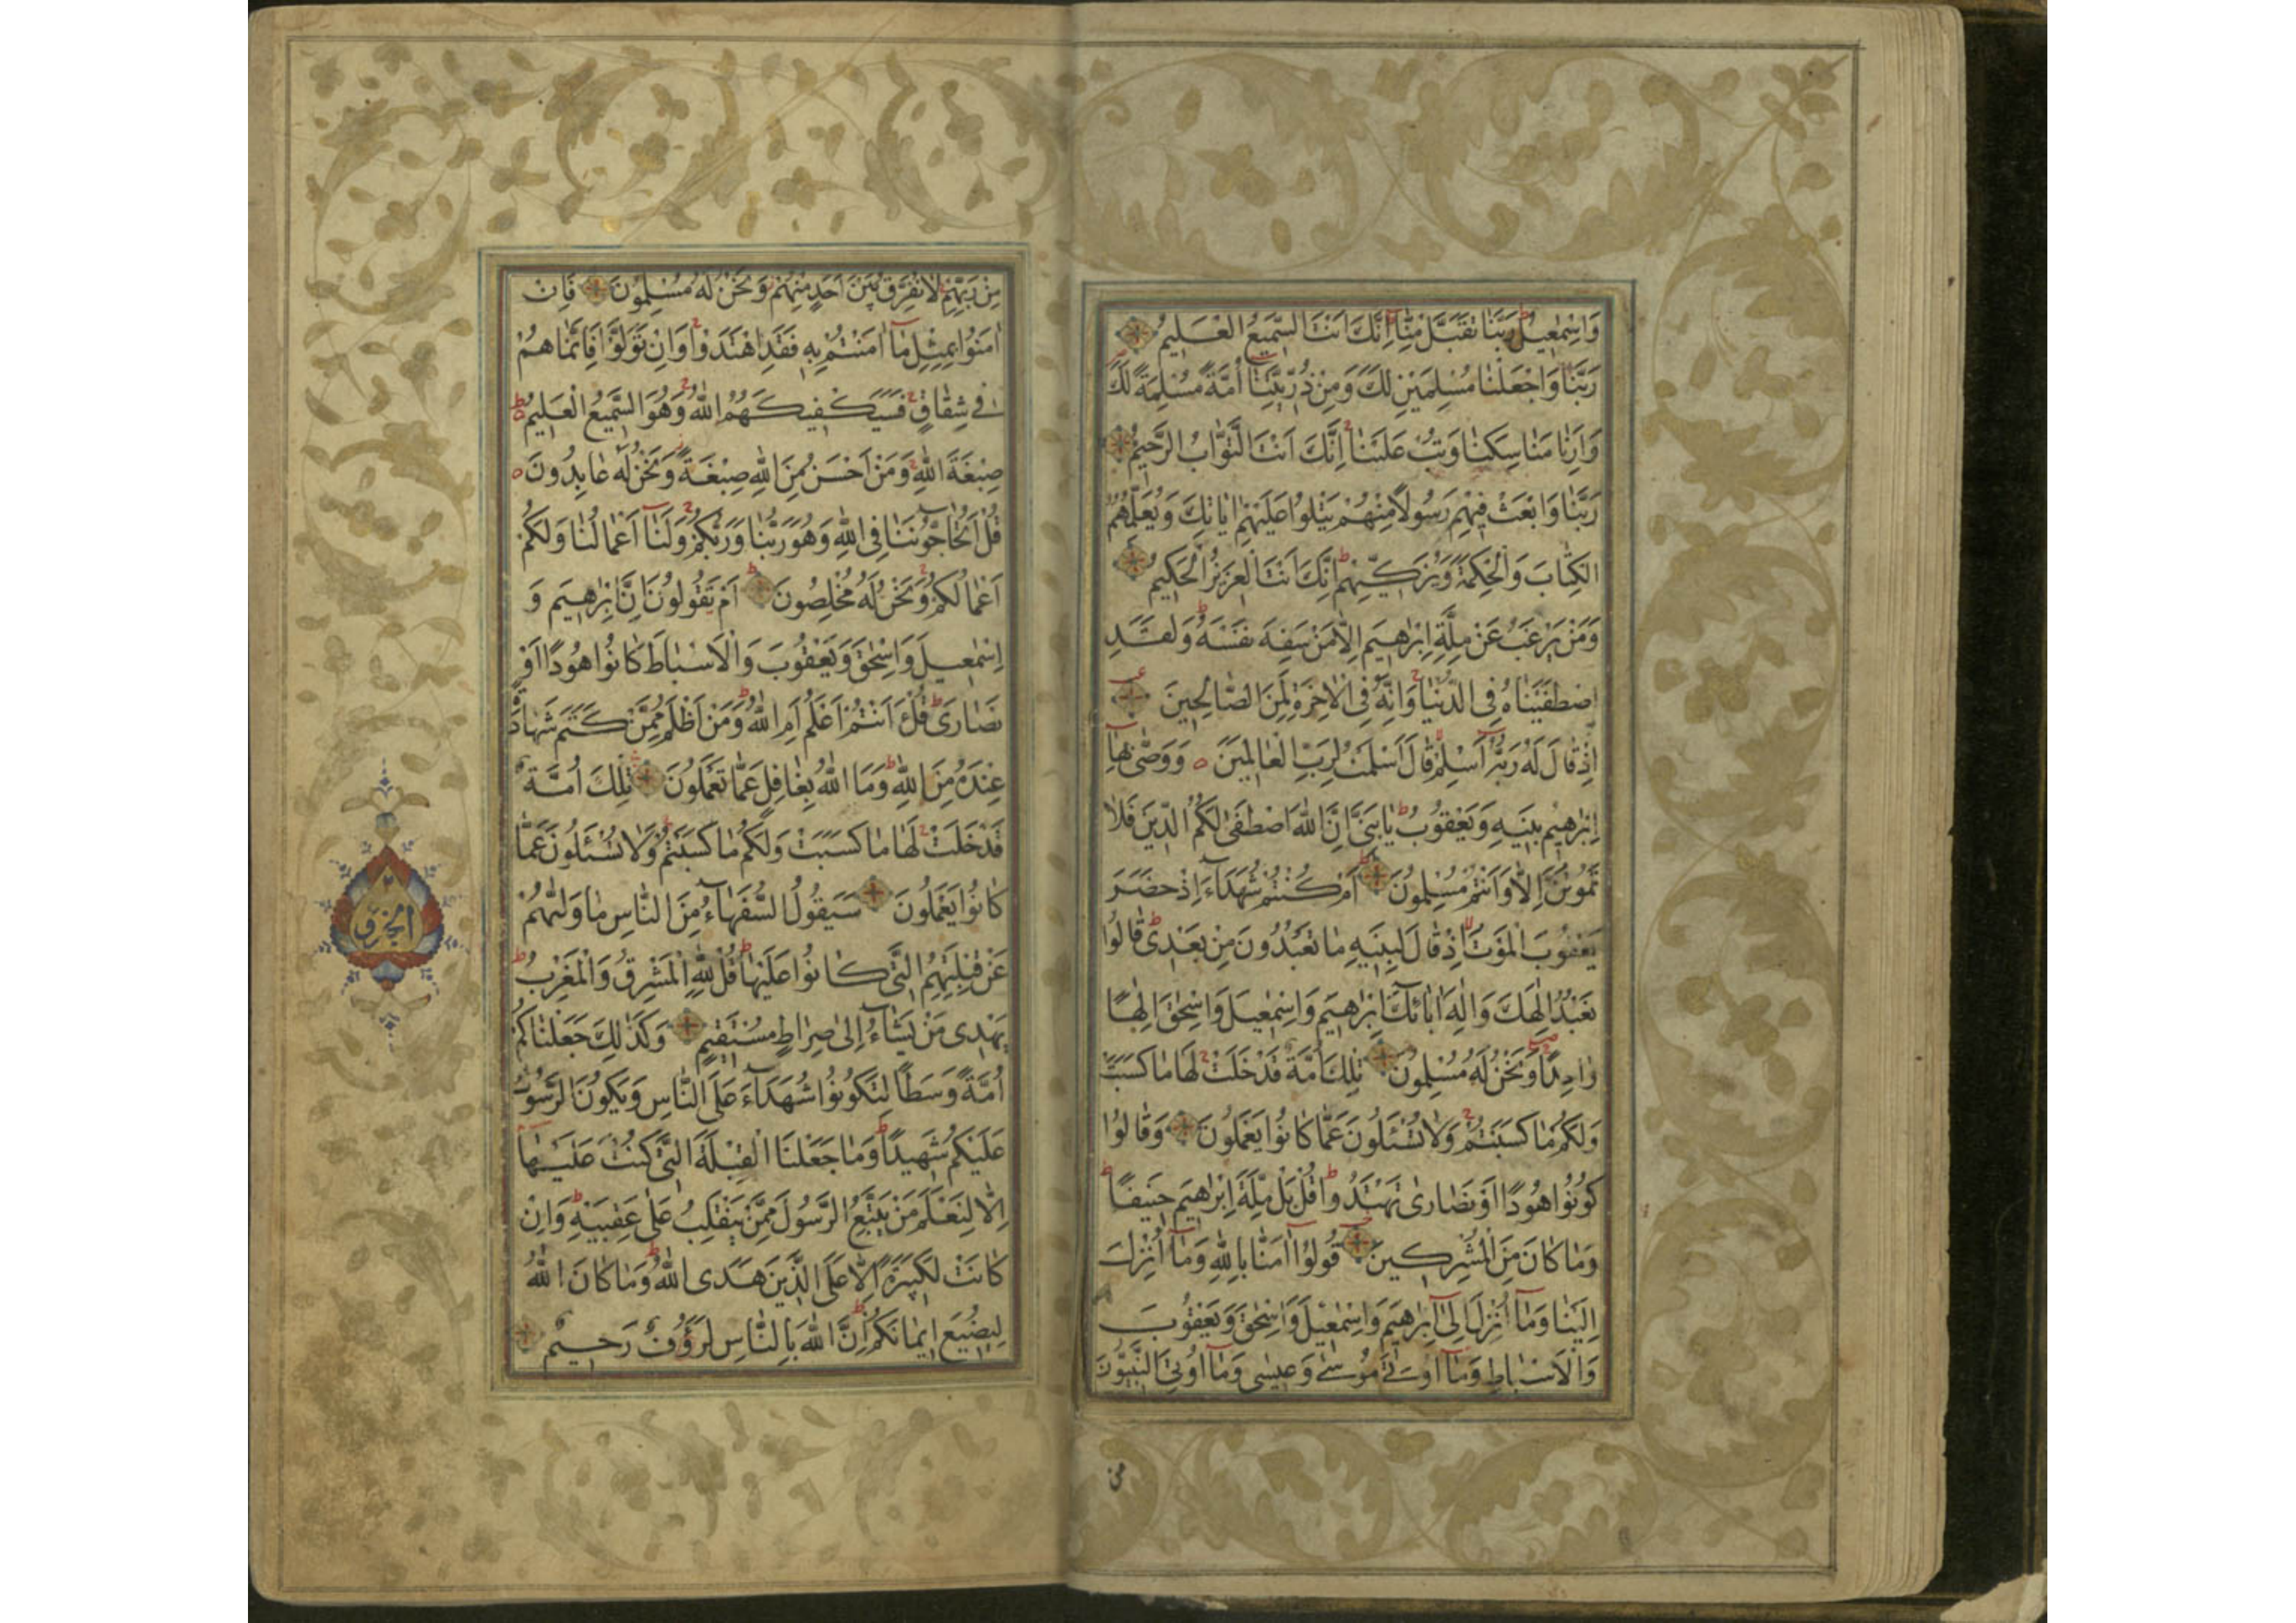 وَاِسْمٰعِيلُ رَبَّنَا تَقَبَّلْ مِنَّا اِنَّكَ اَنْتَ السَّمِيعُ الْعَلِيمُ
رَبَّنَا وَاجْعَلْنَا مُسْلِمَيْنِ لَكَ وَمِنْ ذُرِّيَّتِنَا اُمَّةً مُسْلِمَةً لَكَ
وَاَرِنَا مَنَاسِكَنَا وَتُبْ عَلَيْنَا اِنَّكَ اَنْتَ التَّوَّابُ الرَّحِيمُ
رَبَّنَا وَابْعَثْ فِيهِمْ رَسُولًا مِنْهُمْ يَتْلُوا عَلَيْهِمْ اٰيَاتِكَ وَيُعَلِّمُهُمُ
الْكِتَابَ وَالْحِكْمَةَ وَيُزَكِّيهِمْ اِنَّكَ اَنْتَ الْعَزِيزُ الْحَكِيمُ
وَمَنْ يَرْغَبُ عَنْ مِلَّةِ اِبْرٰهِيمَ اِلَّا مَنْ سَفِهَ نَفْسَهُ وَلَقَدِ
اصْطَفَيْنَاهُ فِى الدُّنْيَا وَاِنَّهُ فِى الْاٰخِرَةِ لَمِنَ الصَّالِحِينَ
اِذْ قَالَ لَهُ رَبُّهُ اَسْلِمْ قَالَ اَسْلَمْتُ لِرَبِّ الْعَالَمِينَ ه وَوَصّٰى بِهَا
اِبْرٰهِيمُ بَنِيهِ وَيَعْقُوبُ يَا بَنِىَّ اِنَّ اللّٰهَ اصْطَفٰى لَكُمُ الدِّينَ فَلَا
تَمُوتُنَّ اِلَّا وَاَنْتُمْ مُسْلِمُونَ اَمْ كُنْتُمْ شُهَدَاءَ اِذْ حَضَرَ
يَعْقُوبَ الْمَوْتُ اِذْ قَالَ لِبَنِيهِ مَا تَعْبُدُونَ مِنْ بَعْدِى قَالُوا
نَعْبُدُ اِلٰهَكَ وَاِلٰهَ اٰبَائِكَ اِبْرٰهِيمَ وَاِسْمٰعِيلَ وَاِسْحٰقَ اِلٰهًا
وَاحِدًا وَنَحْنُ لَهُ مُسْلِمُونَ تِلْكَ اُمَّةٌ قَدْ خَلَتْ لَهَا مَا كَسَبَتْ
وَلَكُمْ مَا كَسَبْتُمْ وَلَا تُسْئَلُونَ عَمَّا كَانُوا يَعْمَلُونَ وَقَالُوا
كُونُوا هُودًا اَوْ نَصَارٰى تَهْتَدُوا قُلْ بَلْ مِلَّةَ اِبْرٰهِيمَ حَنِيفًا
وَمَا كَانَ مِنَ الْمُشْرِكِينَ قُولُوا اٰمَنَّا بِاللّٰهِ وَمَا اُنْزِلَ
اِلَيْنَا وَمَا اُنْزِلَ اِلٰى اِبْرٰهِيمَ وَاِسْمٰعِيلَ وَاِسْحٰقَ وَيَعْقُوبَ
وَالْاَسْبَاطِ وَمَا اُوتِىَ مُوسٰى وَعِيسٰى وَمَا اُوتِىَ النَّبِيُّونَ
من
مِنْ رَبِّهِمْ لَا نُفَرِّقُ بَيْنَ اَحَدٍ مِنْهُمْ وَنَحْنُ لَهُ مُسْلِمُونَ فَاِنْ
اٰمَنُوا بِمِثْلِ مَا اٰمَنْتُمْ بِهِ فَقَدِ اهْتَدَوْا وَاِنْ تَوَلَّوْا فَاِنَّمَا هُمْ
فِى شِقَاقٍ فَسَيَكْفِيكَهُمُ اللّٰهُ وَهُوَ السَّمِيعُ الْعَلِيمُ ه
صِبْغَةَ اللّٰهِ وَمَنْ اَحْسَنُ مِنَ اللّٰهِ صِبْغَةً وَنَحْنُ لَهُ عَابِدُونَ ه
قُلْ اَتُحَاجُّونَنَا فِى اللّٰهِ وَهُوَ رَبُّنَا وَرَبُّكُمْ وَلَنَا اَعْمَالُنَا وَلَكُمْ
اَعْمَالُكُمْ وَنَحْنُ لَهُ مُخْلِصُونَ اَمْ تَقُولُونَ اِنَّ اِبْرٰهِيمَ وَ
اِسْمٰعِيلَ وَاِسْحٰقَ وَيَعْقُوبَ وَالْاَسْبَاطَ كَانُوا هُودًا اَوْ
نَصَارٰى قُلْ ءَاَنْتُمْ اَعْلَمُ اَمِ اللّٰهُ وَمَنْ اَظْلَمُ مِمَّنْ كَتَمَ شَهَادَةً
عِنْدَهُ مِنَ اللّٰهِ وَمَا اللّٰهُ بِغَافِلٍ عَمَّا تَعْمَلُونَ تِلْكَ اُمَّةٌ
قَدْ خَلَتْ لَهَا مَا كَسَبَتْ وَلَكُمْ مَا كَسَبْتُمْ وَلَا تُسْئَلُونَ عَمَّا
كَانُوا يَعْمَلُونَ سَيَقُولُ السُّفَهَاءُ مِنَ النَّاسِ مَا وَلّٰيهُمْ
عَنْ قِبْلَتِهِمُ الَّتِى كَانُوا عَلَيْهَا قُلْ لِلّٰهِ الْمَشْرِقُ وَالْمَغْرِبُ
يَهْدِى مَنْ يَشَاءُ اِلٰى صِرَاطٍ مُسْتَقِيمٍ وَكَذٰلِكَ جَعَلْنَاكُمْ
اُمَّةً وَسَطًا لِتَكُونُوا شُهَدَاءَ عَلَى النَّاسِ وَيَكُونَ الرَّسُولُ
عَلَيْكُمْ شَهِيدًا وَمَا جَعَلْنَا الْقِبْلَةَ الَّتِى كُنْتَ عَلَيْهَا
اِلَّا لِنَعْلَمَ مَنْ يَتَّبِعُ الرَّسُولَ مِمَّنْ يَنْقَلِبُ عَلٰى عَقِبَيْهِ وَاِنْ
كَانَتْ لَكَبِيرَةً اِلَّا عَلَى الَّذِينَ هَدَى اللّٰهُ وَمَا كَانَ اللّٰهُ
لِيُضِيعَ اِيمَانَكُمْ اِنَّ اللّٰهَ بِالنَّاسِ لَرَؤُفٌ رَحِيمٌ